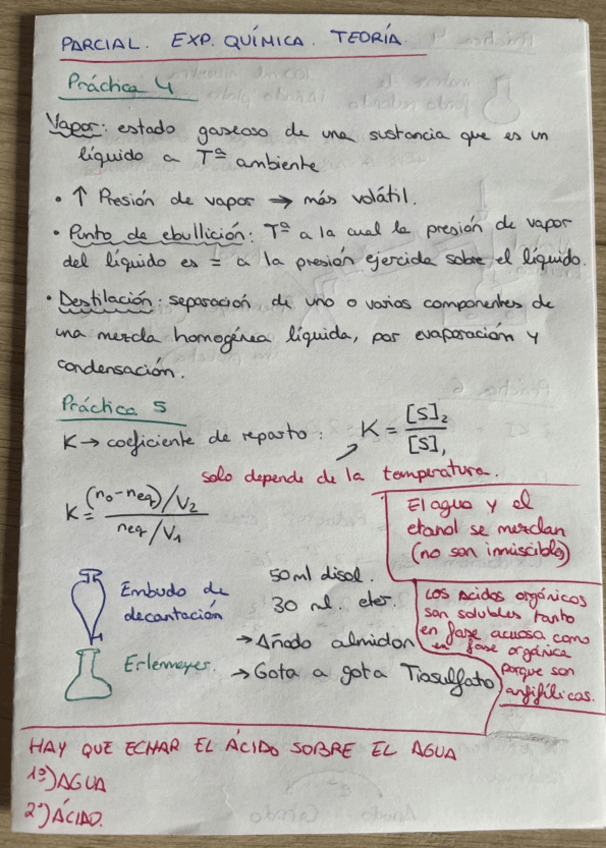 PARCIAL. EXP. QUÍMICA. TEORÍA.
Práctica 4
Vapor: estado gaseoso de una sustancia que es un
líquido a Tª ambiente
• ↑ Presión de vapor → más volátil.
• Punto de ebullición: Tª a la cual la presión de vapor
del líquido es = a la presión ejercida sobre el líquido.
• Destilación: separación de uno o varios componentes de
una mezcla homogénea líquida, por evaporación y
condensación.
Práctica 5
K → coeficiente de reparto: K = [S]₂ / [S]₁
solo depende de la temperatura.
K = (n₀ - neq) / V₂ / neq / V₁
El agua y el
etanol se mezclan
(no son inmiscibles)
Embudo de
decantación
Erlenmeyer.
50ml disol.
30 ml. eter.
→ Añado almidon
→ Gota a gota Tiosulfato
Los Acidos orgánicos
son solubles tanto
en fase acuosa como
en fase orgánica
porque son
anfifílicos.
HAY QUE ECHAR EL ÁCIDO SOBRE EL AGUA
1º) AGUA
2º) ÁCIDO.